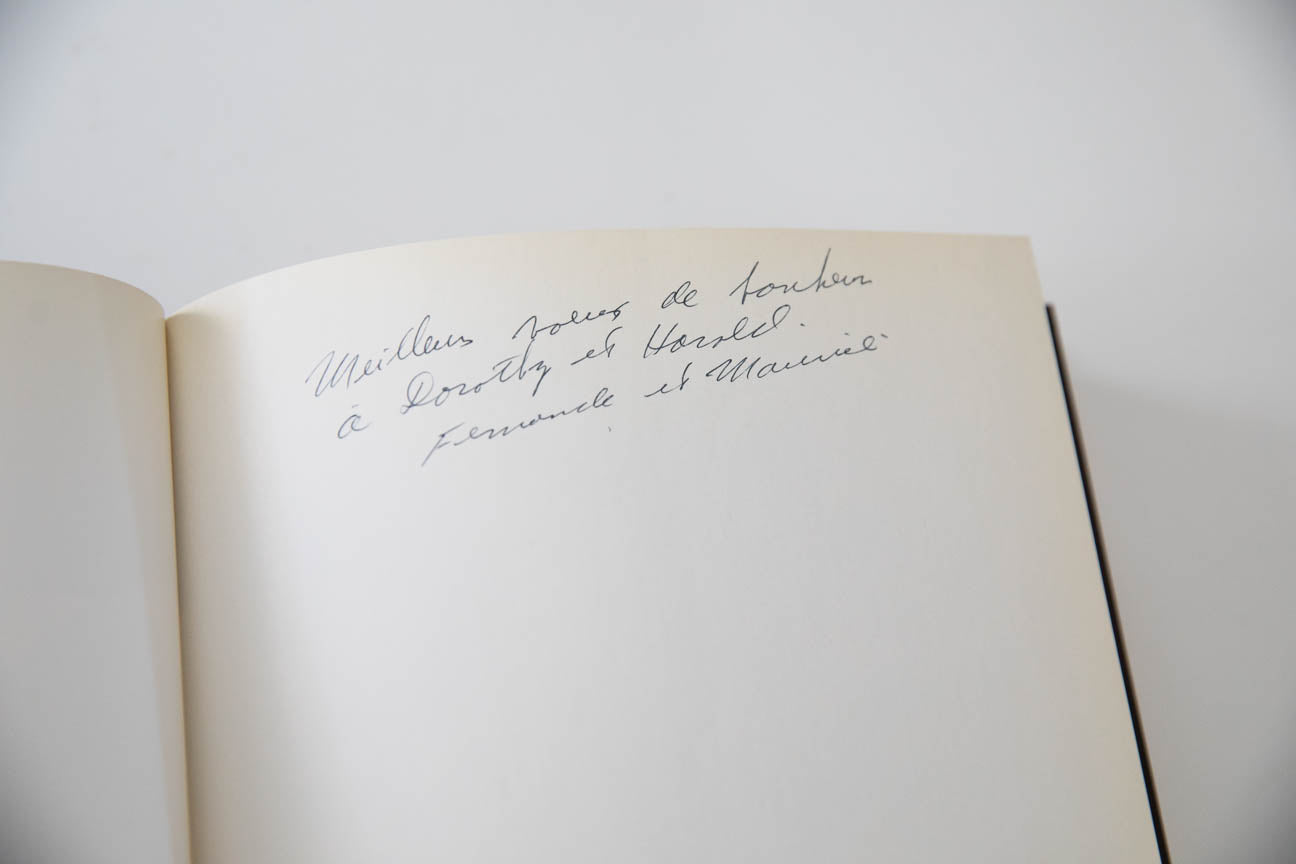 Meilleurs voeux de bonheur
à Dorothy et Harold.
Fernande et Maurice